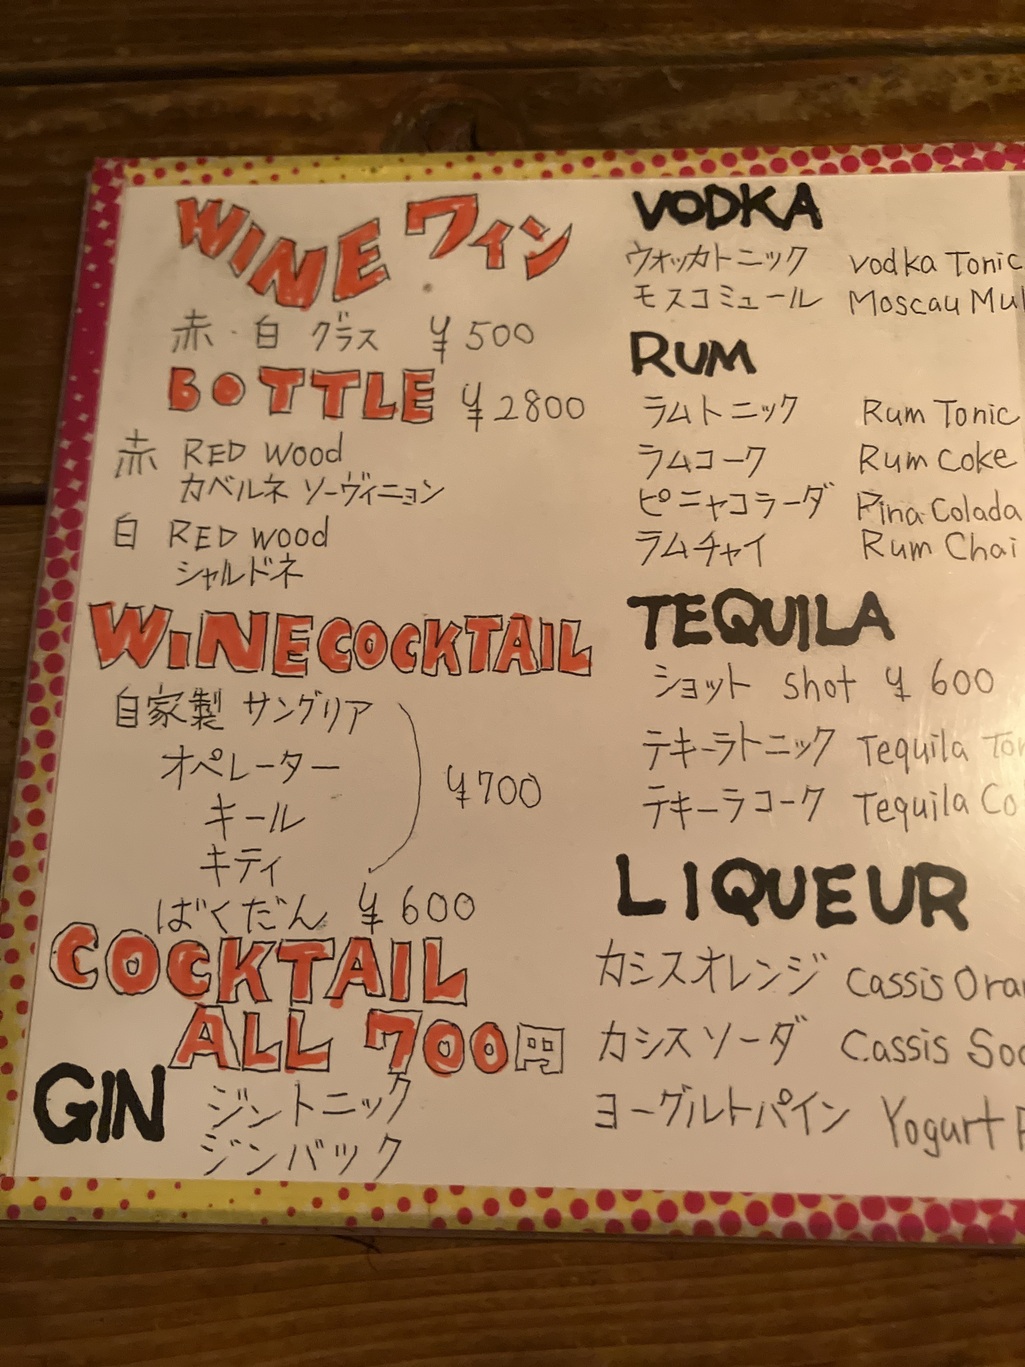 WINE ワイン
赤・白 グラス ¥500
BOTTLE ¥2800
赤 RED wood
カベルネ ソーヴィニョン
白 RED wood
シャルドネ
WINE COCKTAIL
自家製 サングリア
オペレーター
キール
キティ
¥700
ばくだん ¥600
COCKTAIL
ALL 700円
GIN ジントニック
ジンバック
VODKA
ウォッカトニック vodka Tonic
モスコミュール Moscau Mul
RUM
ラムトニック Rum Tonic
ラムコーク Rum Coke
ピニャコラーダ Pina Colada
ラムチャイ Rum Chai
TEQUILA
ショット shot ¥600
テキーラトニック Tequila Ton
テキーラコーク Tequila Co
LIQUEUR
カシスオレンジ Cassis Oran
カシスソーダ Cassis Soc
ヨーグルトパイン Yogurt P